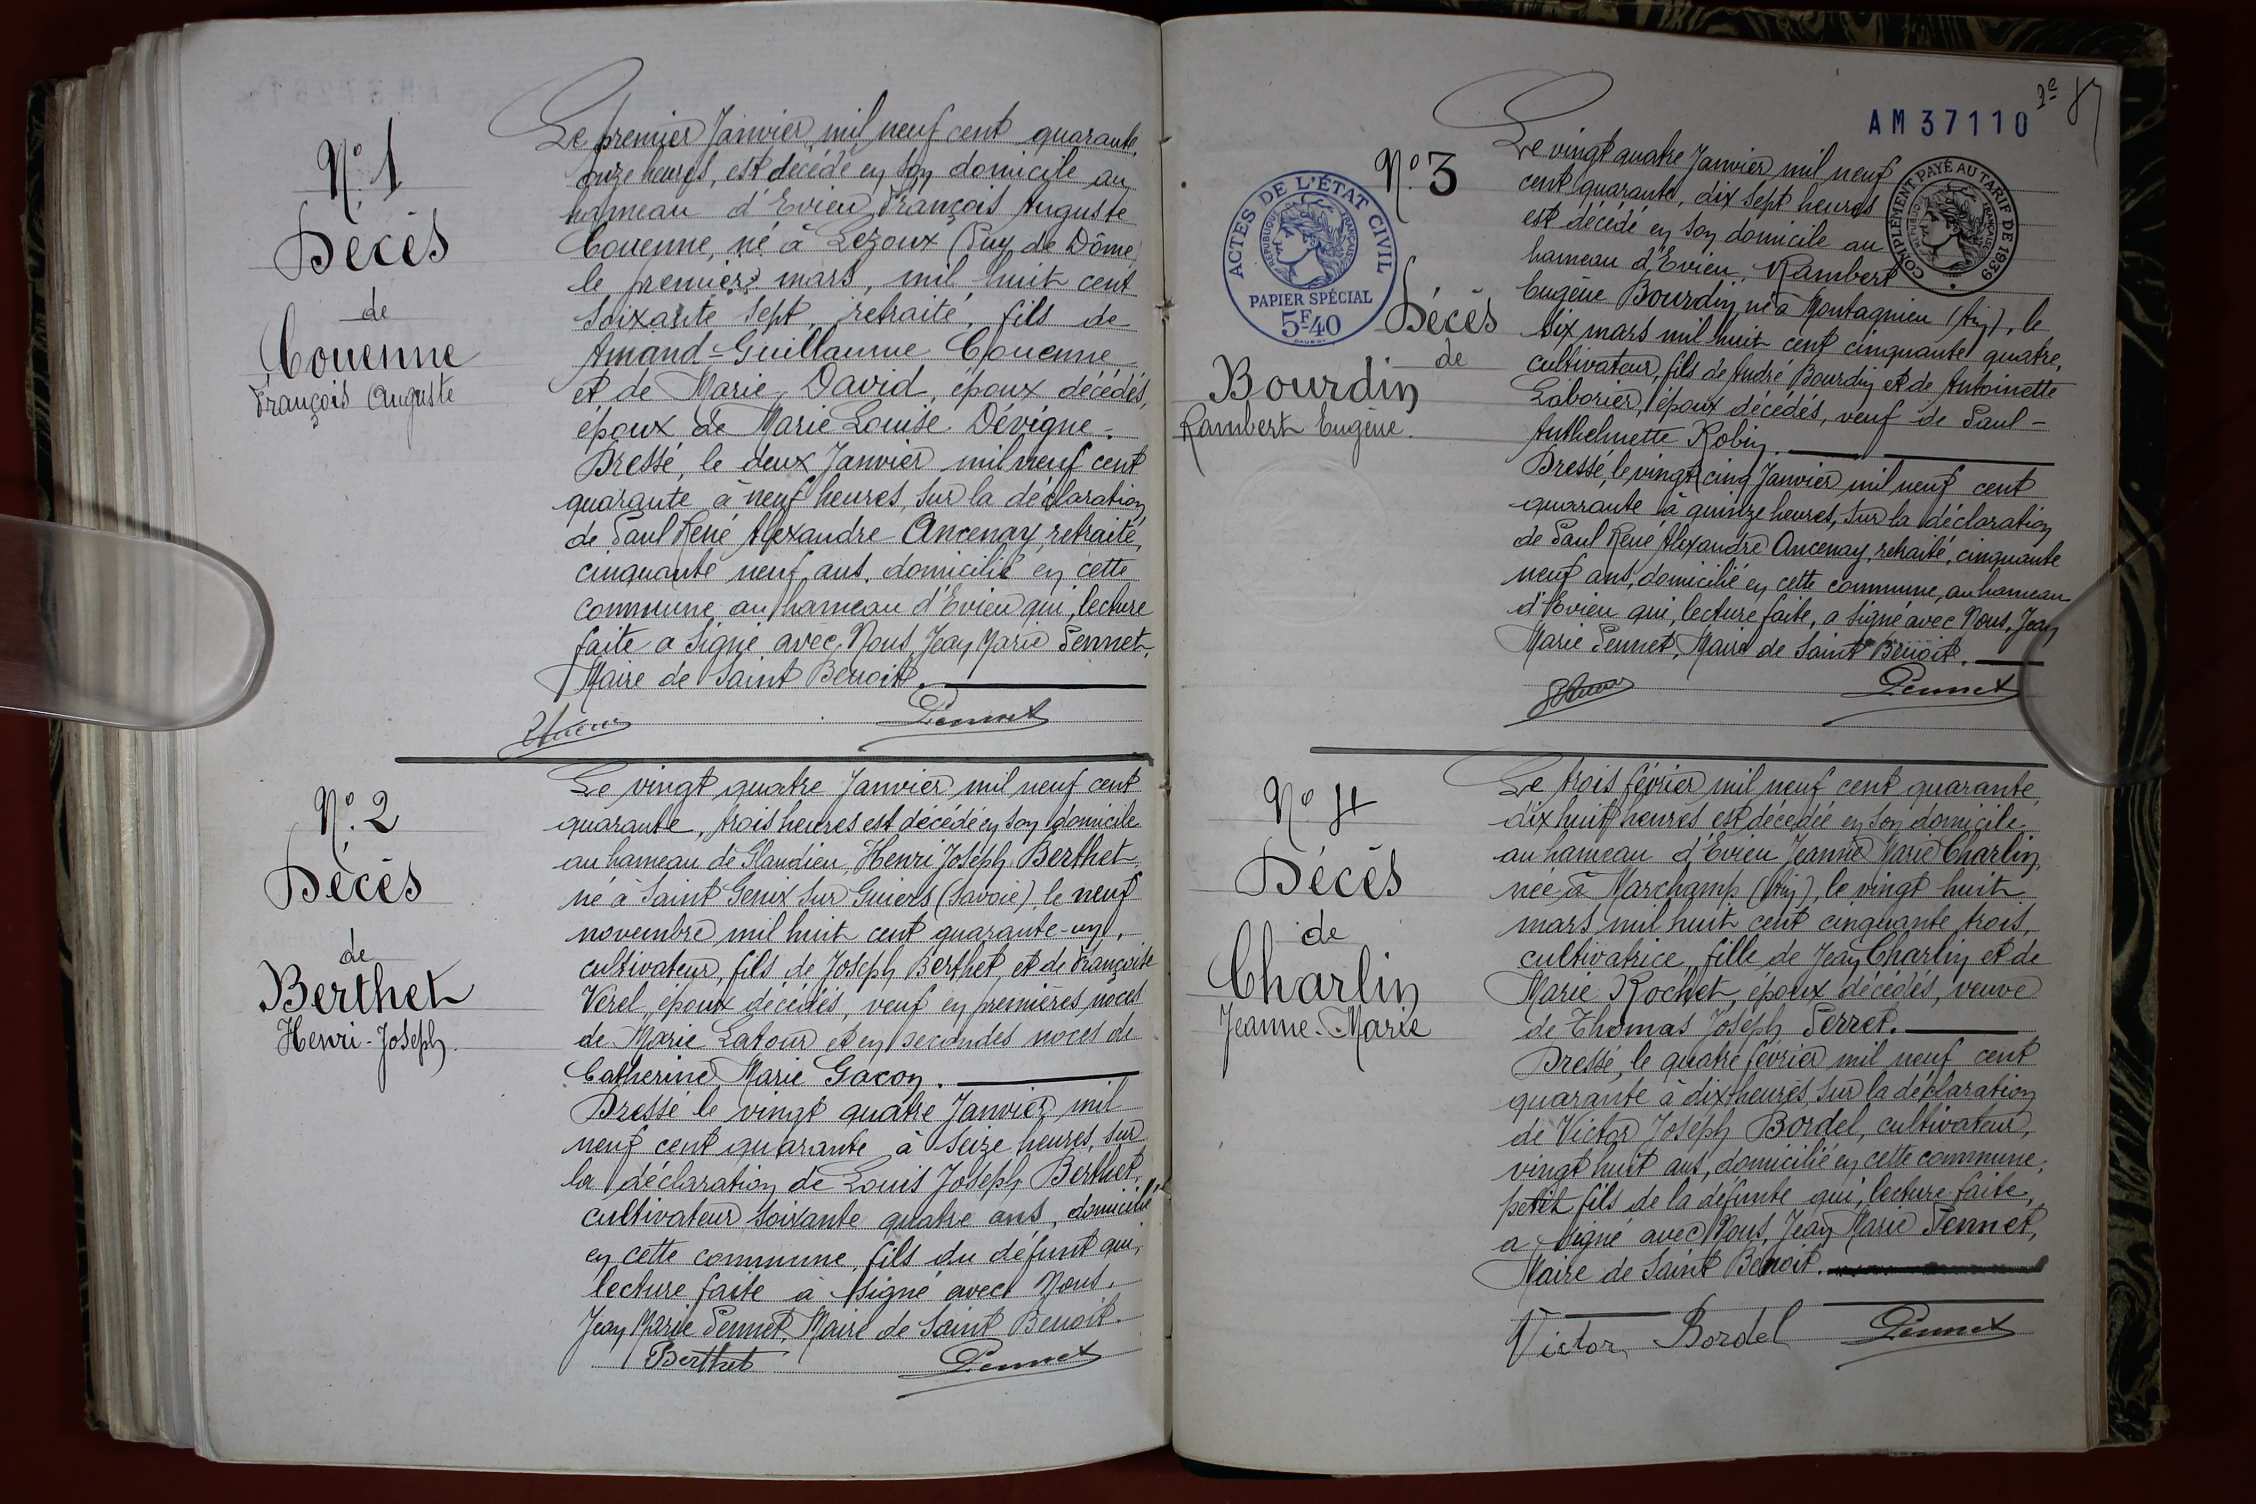 N° 1
Décès
de
Couenne
François Auguste
Le premier Janvier mil neuf cent quarante,
onze heures, est décédé en son domicile au
hameau d'Evieu, François Auguste
Couenne, né à Lezoux (Puy de Dôme)
le premier mars, mil huit cent
soixante sept, retraité, fils de
Amand-Guillaume Couenne
et de Marie David, époux décédés,
époux de Marie Louise Dévigne.
Dressé, le deux Janvier mil neuf cent
quarante à neuf heures, sur la déclaration
de Paul René Alexandre Ancenay, retraité,
cinquante neuf ans, domicilié en cette
commune, au hameau d'Evieu qui, lecture
faite a signé avec Nous, Jean Marie Pennet,
Maire de Saint Benoit.
Pennet
N° 2
Décès
de
Berthet
Henri-Joseph.
Le vingt quatre Janvier, mil neuf cent
quarante, trois heures est décédé en son domicile
au hameau de Glandieu, Henri Joseph Berthet
né à Saint Genix sur Guiers (Savoie), le neuf
novembre mil huit cent quarante-un,
cultivateur, fils de Joseph Berthet, et de Françoise
Verel, époux décédés, veuf en premières noces
de Marie Latour et en secondes noces de
Catherine Marie Gacon.
Dressé le vingt quatre Janvier, mil
neuf cent quarante à seize heures, sur
la déclaration de Louis Joseph Berthet,
cultivateur soixante quatre ans, domicilié
en cette commune, fils du défunt qui,
lecture faite à signé avec Nous,
Jean Marie Pennet, Maire de Saint Benoit.
Berthet Pennet
2e
87
AM 37110
N° 3
ACTES DE L'ÉTAT CIVIL
RÉPUBLIQUE FRANÇAISE
PAPIER SPÉCIAL
5F40
COMPLÉMENT PAYÉ AU TARIF DE 1939
RÉPUBLIQUE FRANÇAISE
Décès
de
Bourdin
Rambert Eugène.
Le vingt quatre Janvier mil neuf
cent quarante, dix sept heures
est décédé en son domicile au
hameau d'Evieu, Rambert
Eugène Bourdin, né à Montagnieu (Ain), le
six mars mil huit cent cinquante quatre,
cultivateur, fils de André Bourdin et de Antoinette
Laborier, époux décédés, veuf de Paul-
Anthelmette Robin.
Dressé, le vingt cinq Janvier mil neuf cent
quarante à quinze heures, sur la déclaration
de Paul René Alexandre Ancenay, retraité, cinquante
neuf ans, domicilié en cette commune, au hameau
d'Evieu qui, lecture faite, a signé avec Nous, Jean
Marie Pennet, Maire de Saint Benoit.
Pennet
N° 4
Décès
de
Charlin
Jeanne-Marie
Le trois février mil neuf cent quarante,
dix huit heures est décédée en son domicile
au hameau d'Evieu Jeanne Marie Charlin,
née à Marchamp (Ain), le vingt huit
mars mil huit cent cinquante trois,
cultivatrice, fille de Jean Charlin et de
Marie Rochet, époux décédés, veuve
de Thomas Joseph Perret.
Dressé, le quatre février mil neuf cent
quarante à dix heures, sur la déclaration
de Victor Joseph Bordel, cultivateur,
vingt huit ans, domicilié en cette commune,
petit fils de la défunte qui, lecture faite,
a signé avec Nous, Jean Marie Pennet,
Maire de Saint Benoit.
Victor Bordel Pennet